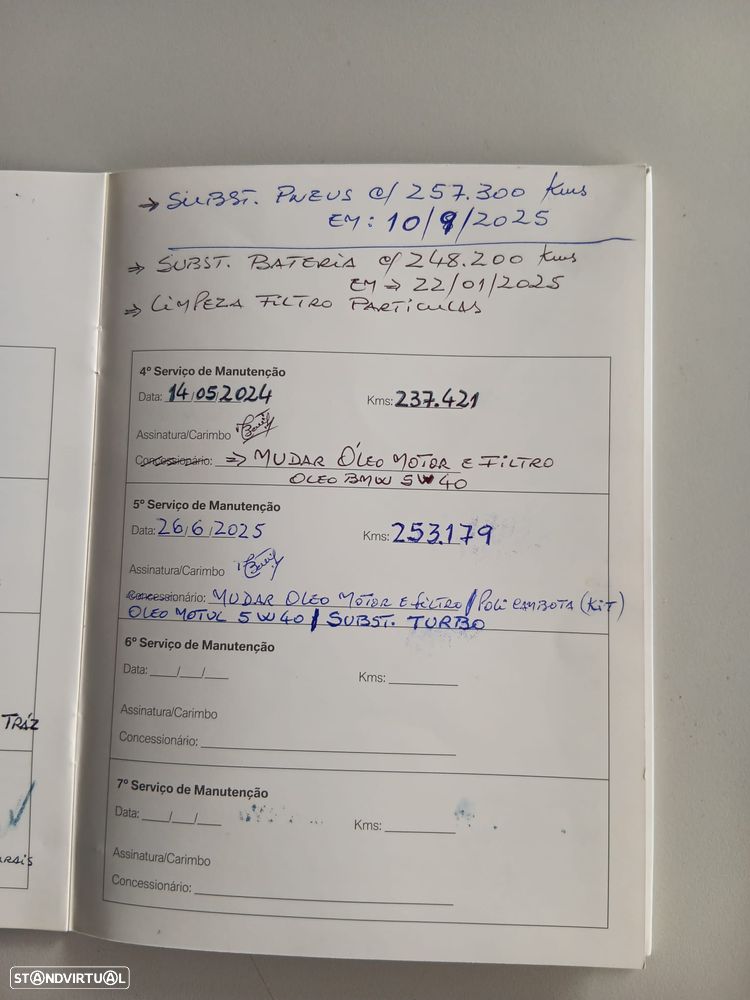 → SUBST. PNEUS C/ 257.300 Kms
EM: 10/9/2025
⇒ SUBST. BATERIA C/ 248.200 Kms
EM → 22/01/2025
⇒ LIMPEZA FILTRO PARTÍCULAS
4º Serviço de Manutenção
Data: 14/05/2024 Kms: 237.421
Assinatura/Carimbo
Concessionário: ⇒ MUDAR ÓLEO MOTOR E FILTRO
OLEO BMW 5W40
5º Serviço de Manutenção
Data: 26/6/2025 Kms: 253.179
Assinatura/Carimbo
Concessionário: MUDAR OLEO MOTOR E FILTRO / POLI CAMBOTA (KIT)
OLEO MOTUL 5W40 / SUBST. TURBO
6º Serviço de Manutenção
Data: ___/___/___ Kms: ________
Assinatura/Carimbo
Concessionário: ________
7º Serviço de Manutenção
Data: ___/___/___ Kms: ________
Assinatura/Carimbo
Concessionário: ________
TRÁZ
STANDVIRTUAL